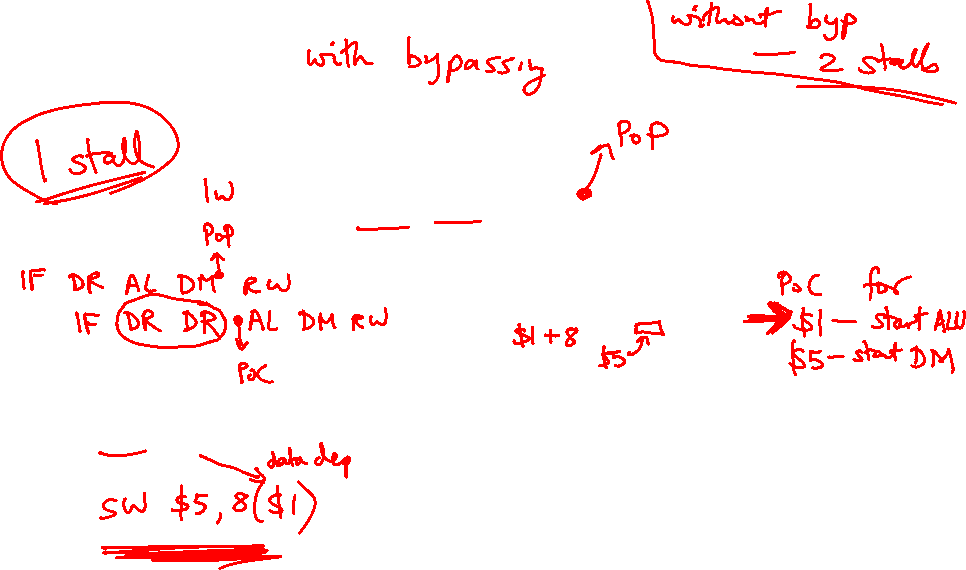 without byp
2 stalls
with bypassing
PoP
1 stall
lw
PoP
IF DR AL DM RW
IF DR DR AL DM RW
PoC
$1+8
$5
PoC for
$1 – start ALU
$5 – start DM
data dep
sw $5, 8($1)